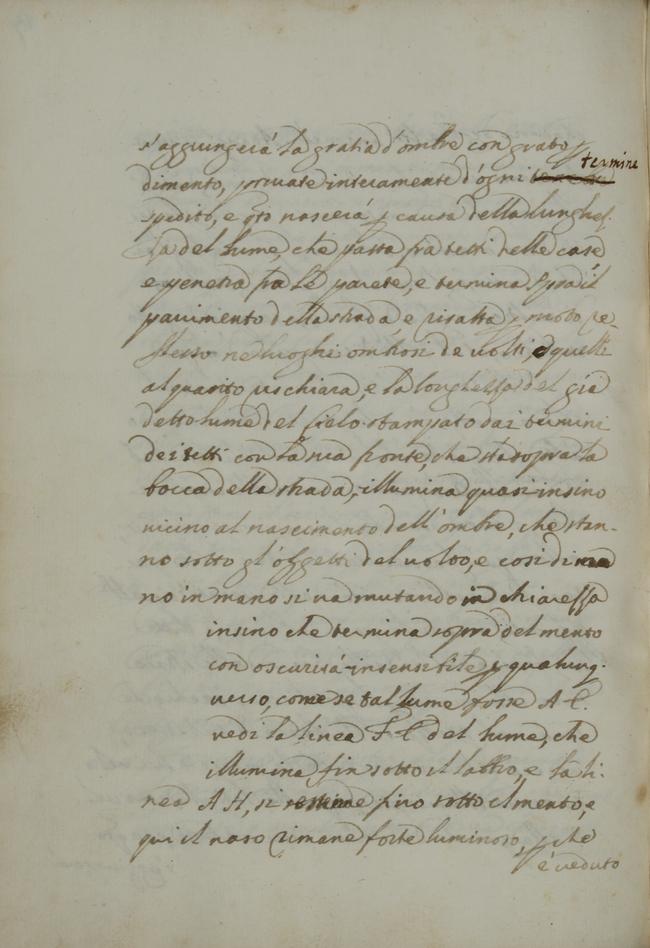 s'aggiungerà la gratia d'ombre con grato
termine
dimento, private interamente d'ogni
spedito, e qto nascerà p causa della lunghez.
za del lume, che passa fra tetti delle case
e penetra fra le parete, e termina sopra il
pavimento della strada, e risalta p moto re-
flesso ne luoghi ombrosi de volti, e quelli
alquanto rischiara, e la longhezza del gia
detto lume del Cielo stampato dai termini
dei tetti con la sua fronte, che sta sopra la
bocca della strada, illumina quasi insino
vicino al nascimento dell'ombre, che stan-
no sotto gl'oggetti del volto, e cosi di ma
no in mano si va mutando in chiarezza
insino che termina sopra del mento
con oscurità insensibile p qualunq.
verso, come se tal lume fosse A E.
vedi la linea F E del lume, che
illumina fin sotto il labbro, e la li-
nea A H, si fino sotto el mento, e
qui il naso rimane forte luminoso, p che
è veduto